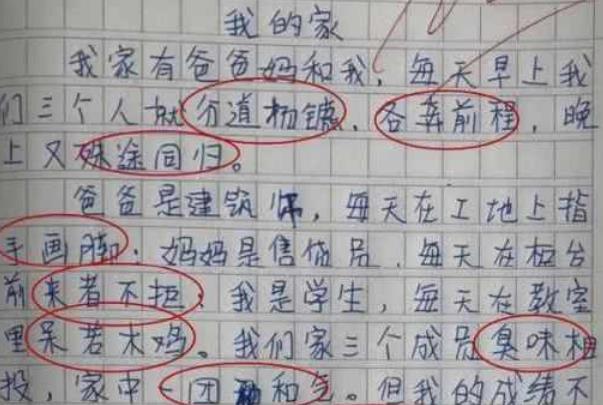 我的家
我家有爸爸妈和我，每天早上我
们三个人就分道杨镳，各奔前程，晚
上又殊途同归。
爸爸是建筑师，每天在工地上指
手画脚；妈妈是售货员，每天在柜台
前来者不拒；我是学生，每天在教室
里呆若木鸡。我们家三个成员臭味相
投，家中一团和气。但我的成绩不